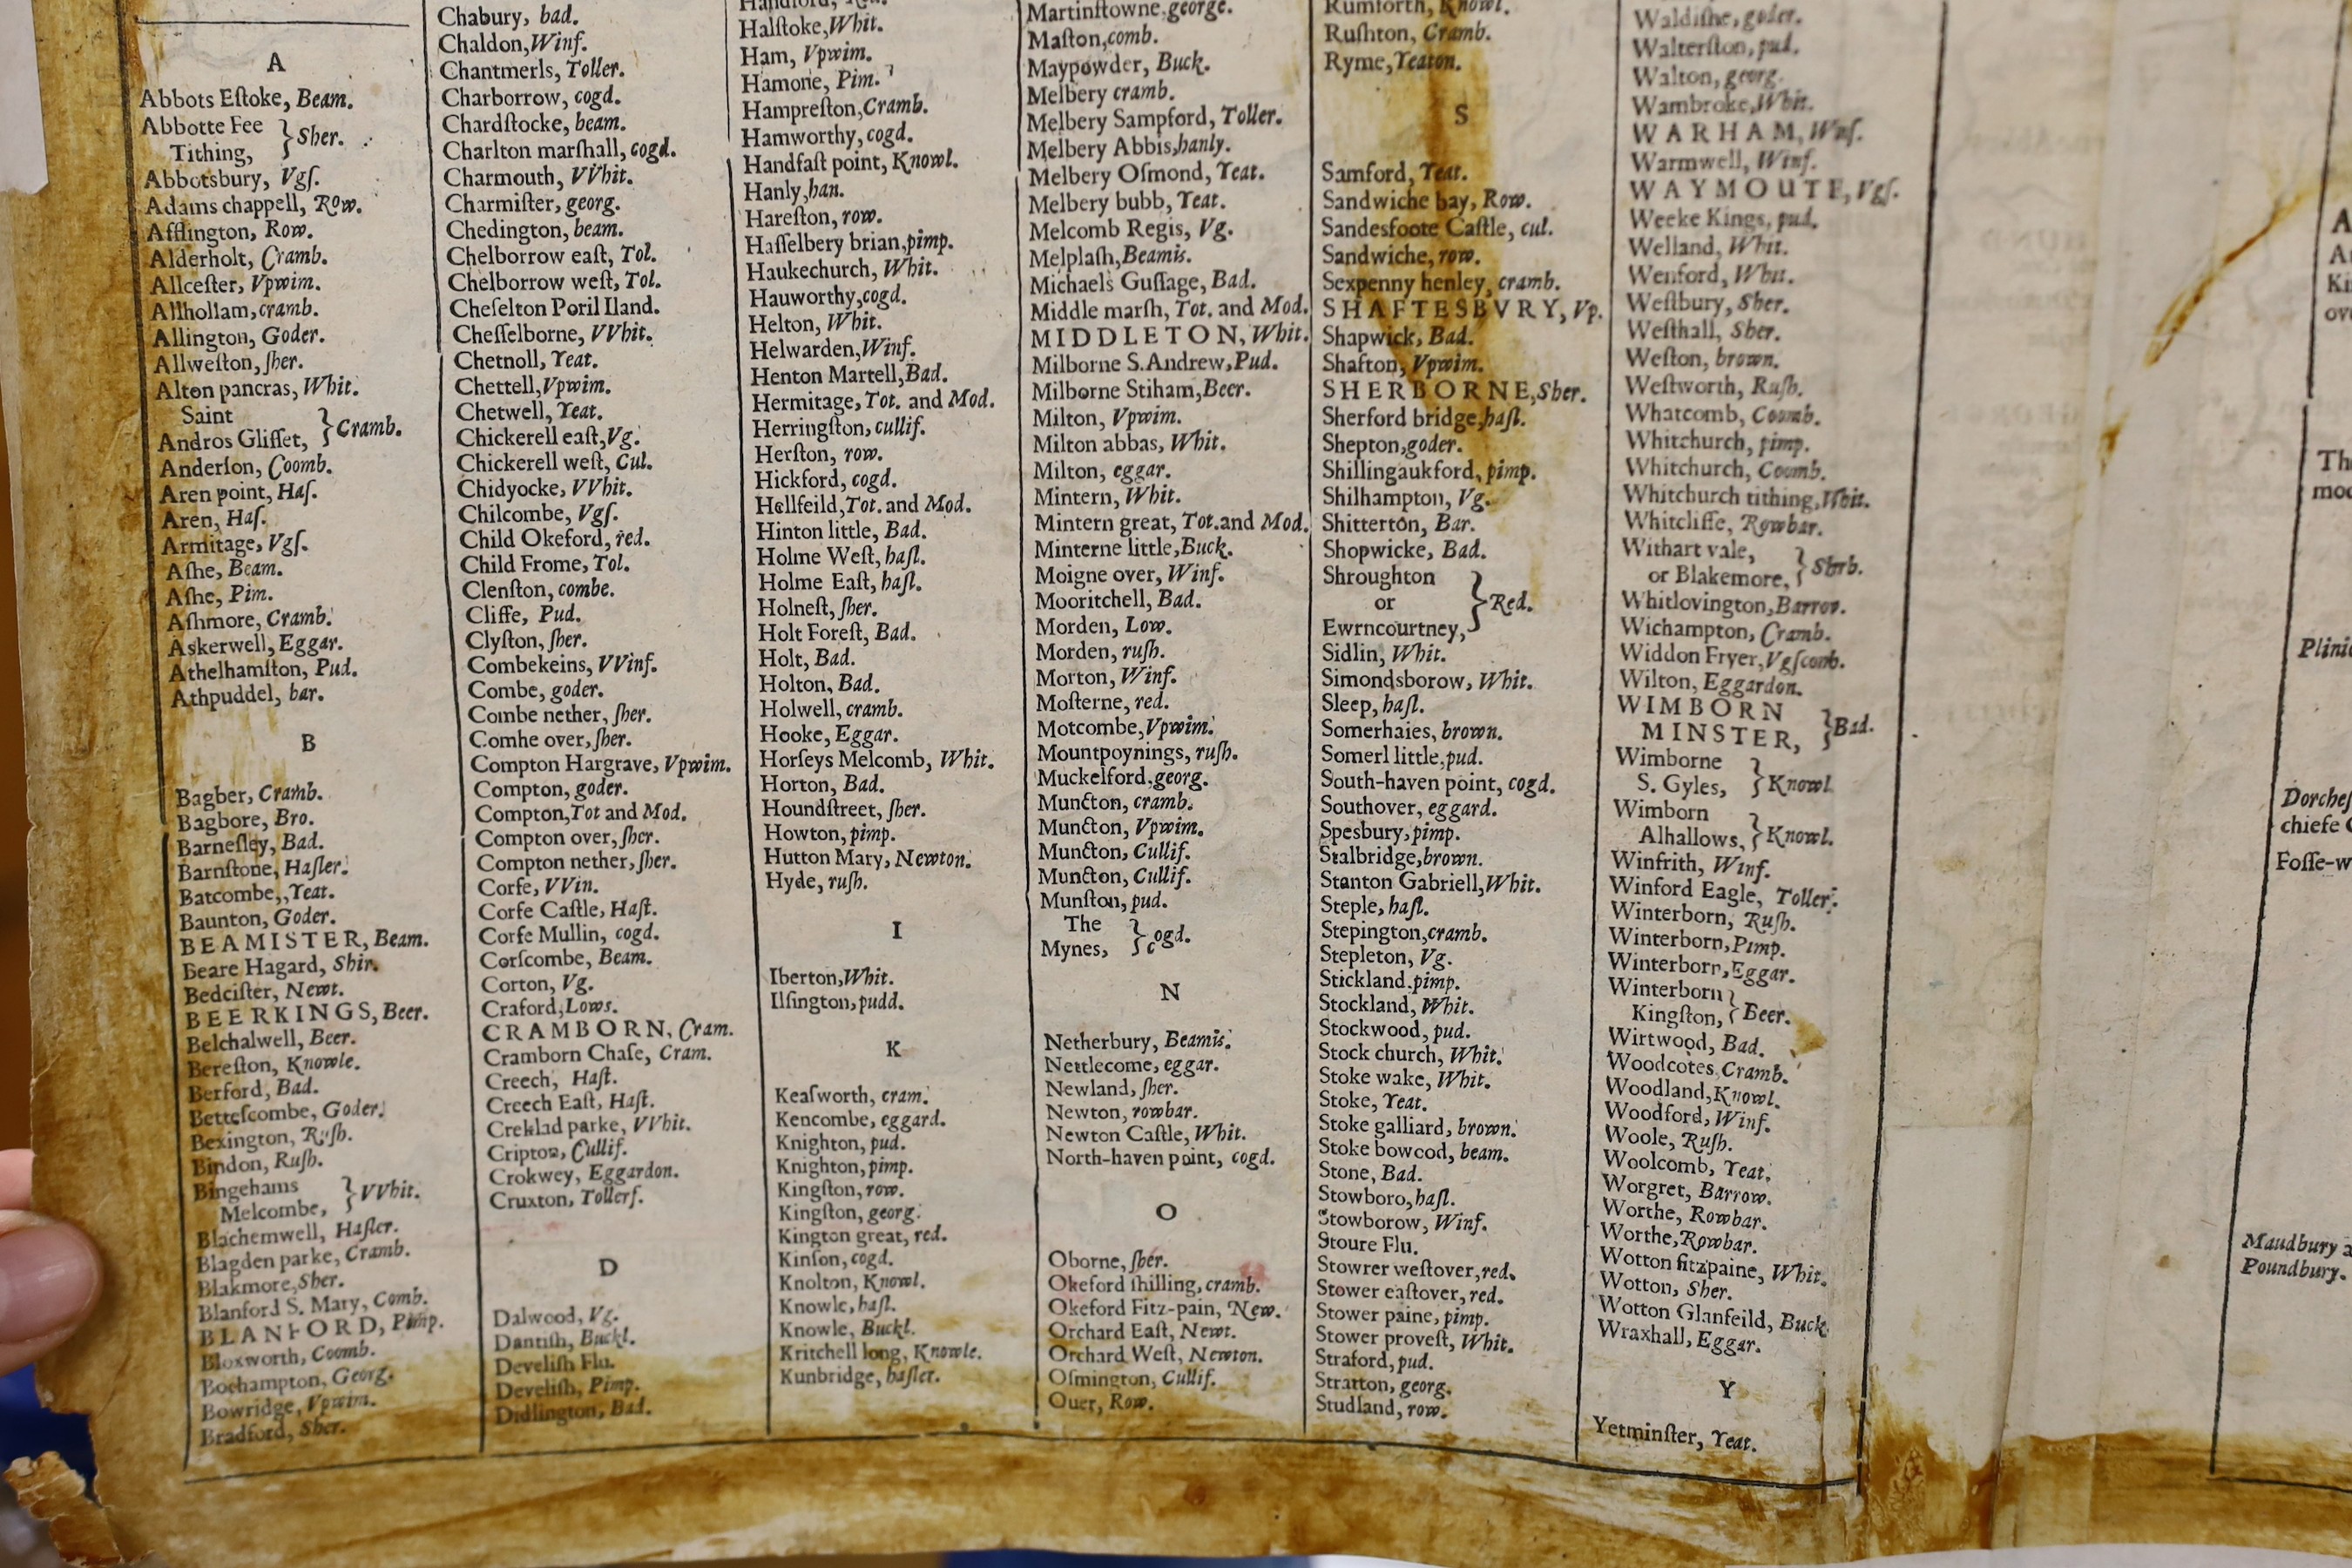 A
Abbots Eſtoke, Beam.
Abbotte Fee
Tithing, } Sher.
Abbotsbury, Vgſ.
Adams chappell, Row.
Afflington, Row.
Alderholt, Cramb.
Allceſter, Vpwim.
Allhollam, cramb.
Allington, Goder.
Allweſton, ſher.
Alton pancras, Whit.
Saint
Andros Gliſſet, } Cramb.
Anderſon, Coomb.
Aren point, Haſ.
Aren, Haſ.
Armitage, Vgſ.
Aſhe, Beam.
Aſhe, Pim.
Aſhmore, Cramb.
Askerwell, Eggar.
Athelhamſton, Pud.
Athpuddel, bar.
B
Bagber, Cramb.
Bagbore, Bro.
Barneſley, Bad.
Barnſtone, Haſler.
Batcombe,,Yeat.
Baunton, Goder.
BEAMISTER, Beam.
Beare Hagard, Shir.
Bedciſter, Newt.
BEERKINGS, Beer.
Belchalwell, Beer.
Bereſton, Knowle.
Berford, Bad.
Betteſcombe, Goder.
Bexington, Ruſh.
Bindon, Ruſh.
Bingehams
Melcombe, } VVhit.
Blachemwell, Haſler.
Blagden parke, Cramb.
Blakmore, Sher.
Blanford S. Mary, Comb.
BLANFORD, Pimp.
Bloxworth, Coomb.
Bochampton, Georg.
Bowridge, Vpwim.
Bradford, Sher.
Chabury, bad.
Chaldon, Winf.
Chantmerls, Toller.
Charborrow, cogd.
Chardſtocke, beam.
Charlton marſhall, cogd.
Charmouth, VVhit.
Charmiſter, georg.
Chedington, beam.
Chelborrow eaſt, Tol.
Chelborrow weſt, Tol.
Cheſelton Poril Iland.
Cheſſelborne, VVhit.
Chetnoll, Yeat.
Chettell, Vpwim.
Chetwell, Yeat.
Chickerell eaſt, Vg.
Chickerell weſt, Cul.
Chidyocke, VVhit.
Chilcombe, Vgſ.
Child Okeford, red.
Child Frome, Tol.
Clenſton, combe.
Cliffe, Pud.
Clyſton, ſher.
Combekeins, VVinf.
Combe, goder.
Combe nether, ſher.
Comhe over, ſher.
Compton Hargrave, Vpwim.
Compton, goder.
Compton, Tot and Mod.
Compton over, ſher.
Compton nether, ſher.
Corfe, VVin.
Corfe Caſtle, Haſt.
Corfe Mullin, cogd.
Corſcombe, Beam.
Corton, Vg.
Craford, Lows.
CRAMBORN, Cram.
Cramborn Chaſe, Cram.
Creech, Haſt.
Creech Eaſt, Haſt.
Creklad parke, VVhit.
Cripton, Cullif.
Crokwey, Eggardon.
Cruxton, Tollerf.
D
Dalwood, Vg.
Dantiſh, Buckl.
Develiſh Flu.
Develiſh, Pimp.
Didlington, Bad.
Halſtoke, Whit.
Ham, Vpwim.
Hamone, Pim.
Hampreſton, Cramb.
Hamworthy, cogd.
Handfaſt point, Knowl.
Hanly, han.
Hareſton, row.
Haſſelbery brian, pimp.
Haukechurch, Whit.
Hauworthy, cogd.
Helton, Whit.
Helwarden, Winf.
Henton Martell, Bad.
Hermitage, Tot. and Mod.
Herringſton, cullif.
Herſton, row.
Hickford, cogd.
Hellfeild, Tot. and Mod.
Hinton little, Bad.
Holme Weſt, haſl.
Holme Eaſt, haſl.
Holneſt, ſher.
Holt Foreſt, Bad.
Holt, Bad.
Holton, Bad.
Holwell, cramb.
Hooke, Eggar.
Horſeys Melcomb, Whit.
Horton, Bad.
Houndſtreet, ſher.
Howton, pimp.
Hutton Mary, Newton.
Hyde, ruſh.
I
Iberton, Whit.
Ilſington, pudd.
K
Keaſworth, cram.
Kencombe, eggard.
Knighton, pud.
Knighton, pimp.
Kingſton, row.
Kingſton, georg.
Kington great, red.
Kinſon, cogd.
Knolton, Knowl.
Knowle, haſl.
Knowle, Buckl.
Kritchell long, Knowle.
Kunbridge, haſler.
Martinſtowne, george.
Maſton, comb.
Maypowder, Buck.
Melbery cramb.
Melbery Sampford, Toller.
Melbery Abbis, hanly.
Melbery Oſmond, Yeat.
Melbery bubb, Yeat.
Melcomb Regis, Vg.
Melplaſh, Beamis.
Michaels Guſſage, Bad.
Middle marſh, Tot. and Mod.
MIDDLETON, Whit.
Milborne S. Andrew, Pud.
Milborne Stiham, Beer.
Milton, Vpwim.
Milton abbas, Whit.
Milton, eggar.
Mintern, Whit.
Mintern great, Tot. and Mod.
Minterne little, Buck.
Moigne over, Winf.
Mooritchell, Bad.
Morden, Low.
Morden, ruſh.
Morton, Winf.
Moſterne, red.
Motcombe, Vpwim.
Mountpoynings, ruſh.
Muckelford, georg.
Muncton, cramb.
Muncton, Vpwim.
Muncton, Cullif.
Muncton, Cullif.
Munſton, pud.
The
Mynes, } cogd.
N
Netherbury, Beamis.
Nettlecome, eggar.
Newland, ſher.
Newton, rowbar.
Newton Caſtle, Whit.
North-haven point, cogd.
O
Oborne, ſher.
Okeford ſhilling, cramb.
Okeford Fitz-pain, New.
Orchard Eaſt, Newt.
Orchard Weſt, Newton.
Oſmington, Cullif.
Ouer, Row.
Rumforth, Knowl.
Ruſhton, Cramb.
Ryme, Yeaton.
S
Samford, Yeat.
Sandwiche bay, Row.
Sandesfoote Caſtle, cul.
Sandwiche, row.
Sexpenny henley, cramb.
SHAFTESBVRY, Vp.
Shapwick, Bad.
Shafton, Vpwim.
SHERBORNE, Sher.
Sherford bridge, haſl.
Shepton, goder.
Shillingaukford, pimp.
Shilhampton, Vg.
Shitterton, Bar.
Shopwicke, Bad.
Shroughton
or } Red.
Ewrncourtney,
Sidlin, Whit.
Simondsborow, Whit.
Sleep, haſl.
Somerhaies, brown.
Somerl little, pud.
South-haven point, cogd.
Southover, eggard.
Spesbury, pimp.
Stalbridge, brown.
Stanton Gabriell, Whit.
Steple, haſl.
Stepington, cramb.
Stepleton, Vg.
Stickland. pimp.
Stockland, Whit.
Stockwood, pud.
Stock church, Whit.
Stoke wake, Whit.
Stoke, Yeat.
Stoke galliard, brown.
Stoke bowcod, beam.
Stone, Bad.
Stowboro, haſl.
Stowborow, Winf.
Stoure Flu.
Stowrer weſtover, red.
Stower eaſtover, red.
Stower paine, pimp.
Stower proveſt, Whit.
Straford, pud.
Stratton, georg.
Studland, row.
Waldiſhe, goder.
Walterſton, pud.
Walton, georg.
Wambroke, Whit.
WARHAM, Winf.
Warmwell, Winf.
WAYMOUTE, Vgſ.
Weeke Kings, pud.
Welland, Whit.
Wenford, Whit.
Weſtbury, Sher.
Weſthall, Sher.
Weſton, brown.
Weſtworth, Ruſh.
Whatcomb, Coomb.
Whitchurch, pimp.
Whitchurch, Coomb.
Whitchurch tithing, Whit.
Whitcliffe, Rowbar.
Withart vale,
or Blakemore, } Shrb.
Whitlovington, Barrov.
Wichampton, Cramb.
Widdon Fryer, Vgſcomb.
Wilton, Eggardon.
WIMBORN
MINSTER, } Bad.
Wimborne
S. Gyles, } Knowl
Wimborn
Alhallows, } Knowl.
Winfrith, Winf.
Winford Eagle, Toller.
Winterborn, Ruſh.
Winterborn, Pimp.
Winterborn, Eggar.
Winterborn
Kingſton, } Beer.
Wirtwood, Bad.
Woodcotes Cramb.
Woodland, Knowl.
Woodford, Winf.
Woole, Ruſh.
Woolcomb, Yeat.
Worgret, Barrow.
Worthe, Rowbar.
Worthe, Rowbar.
Wotton fitzpaine, Whit.
Wotton, Sher.
Wotton Glanfeild, Buck
Wraxhall, Eggar.
Y
Yetminſter, Yeat.
Plini
Dorcheſ
chiefe
Foſſe-w
Maudbury a
Poundbury.